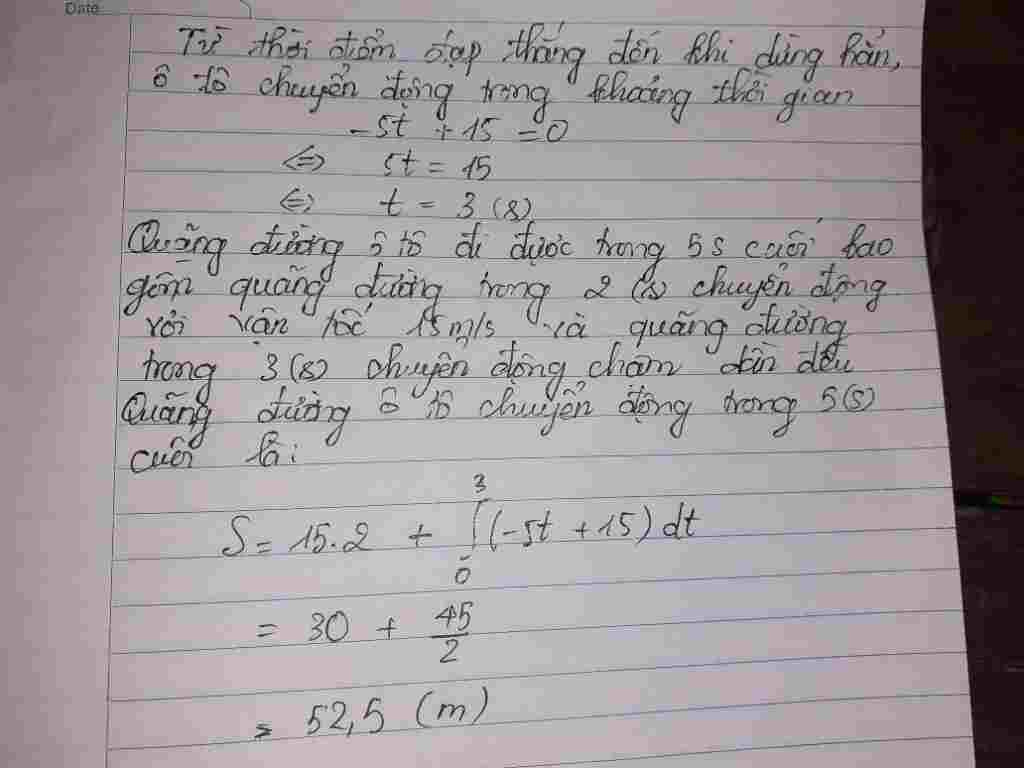 Date
Từ thời điểm đạp thắng đến khi dừng hẳn,
ô tô chuyển động trong khoảng thời gian
-5t + 15 = 0
⇔ 5t = 15
⇔ t = 3 (s)
Quãng đường ô tô đi được trong 5s cuối bao
gồm quãng đường trong 2 (s) chuyển động
với vận tốc 15m/s và quãng đường
trong 3 (s) chuyển động chậm dần đều
Quãng đường ô tô chuyển động trong 5(s)
cuối là:
S = 15.2 + ∫₀³ (-5t + 15) dt
= 30 + 45/2
= 52,5 (m)